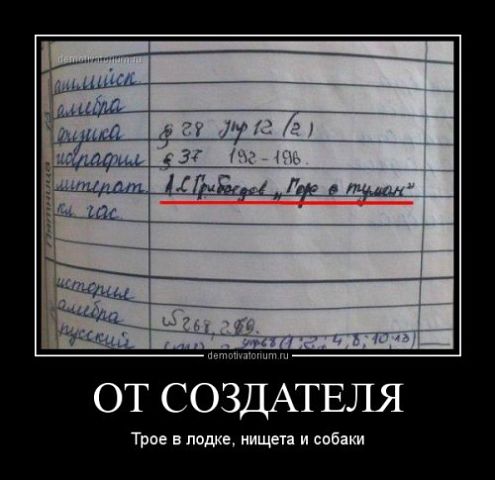 demotivatorium.ru
английск.
алгебра
физика § 28 упр 12 (2)
география § 37 192-196.
литерат. А.С.Грибоедов „Горе о туман"
кл. час.
Пятница
история
алгебра № 268, 269.
русский
demotivatorium.ru
ОТ СОЗДАТЕЛЯ
Трое в лодке, нищета и собаки